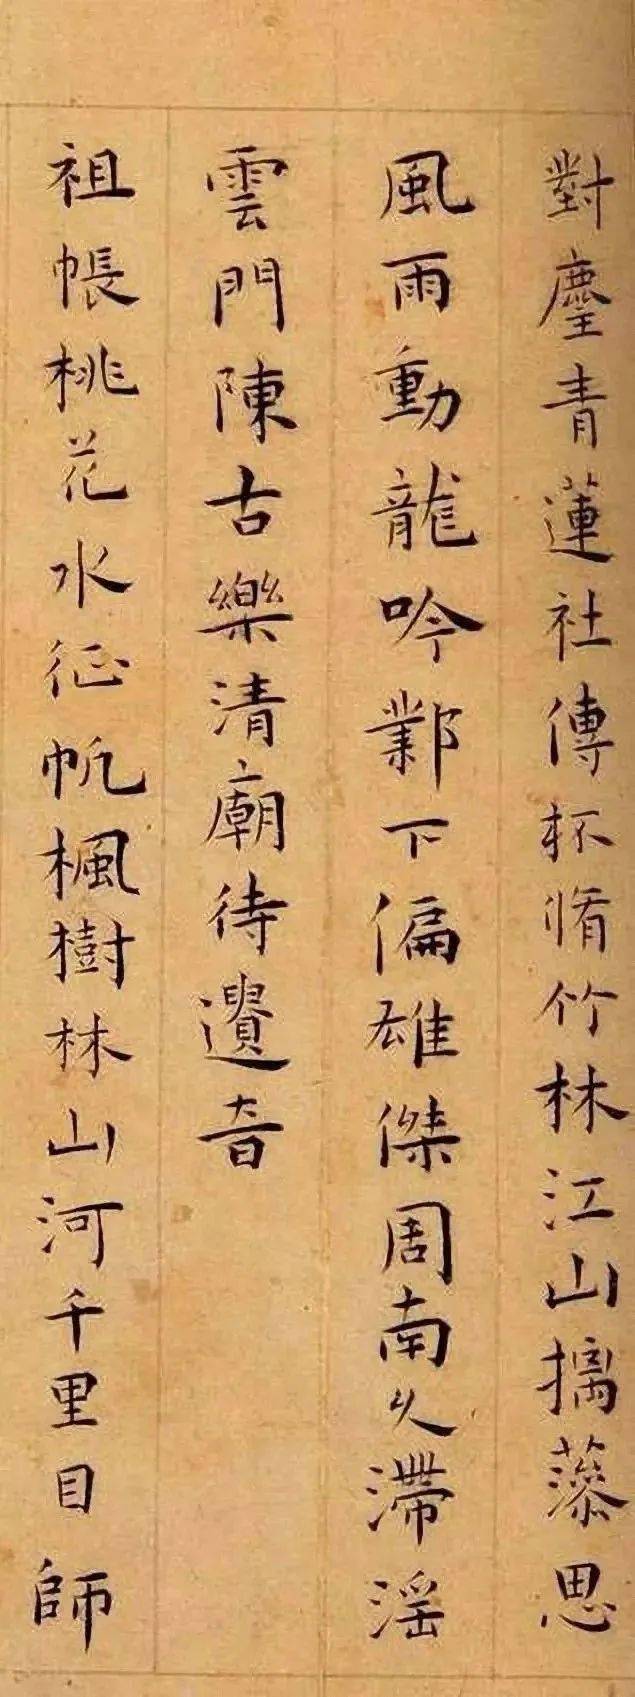 對麈青蓮社傳杯脩竹林江山摛藻思
風雨動龍吟鄴下偏雄傑周南久滯淫
雲門陳古樂清廟待遺音
祖帳桃花水征帆楓樹林山河千里目師